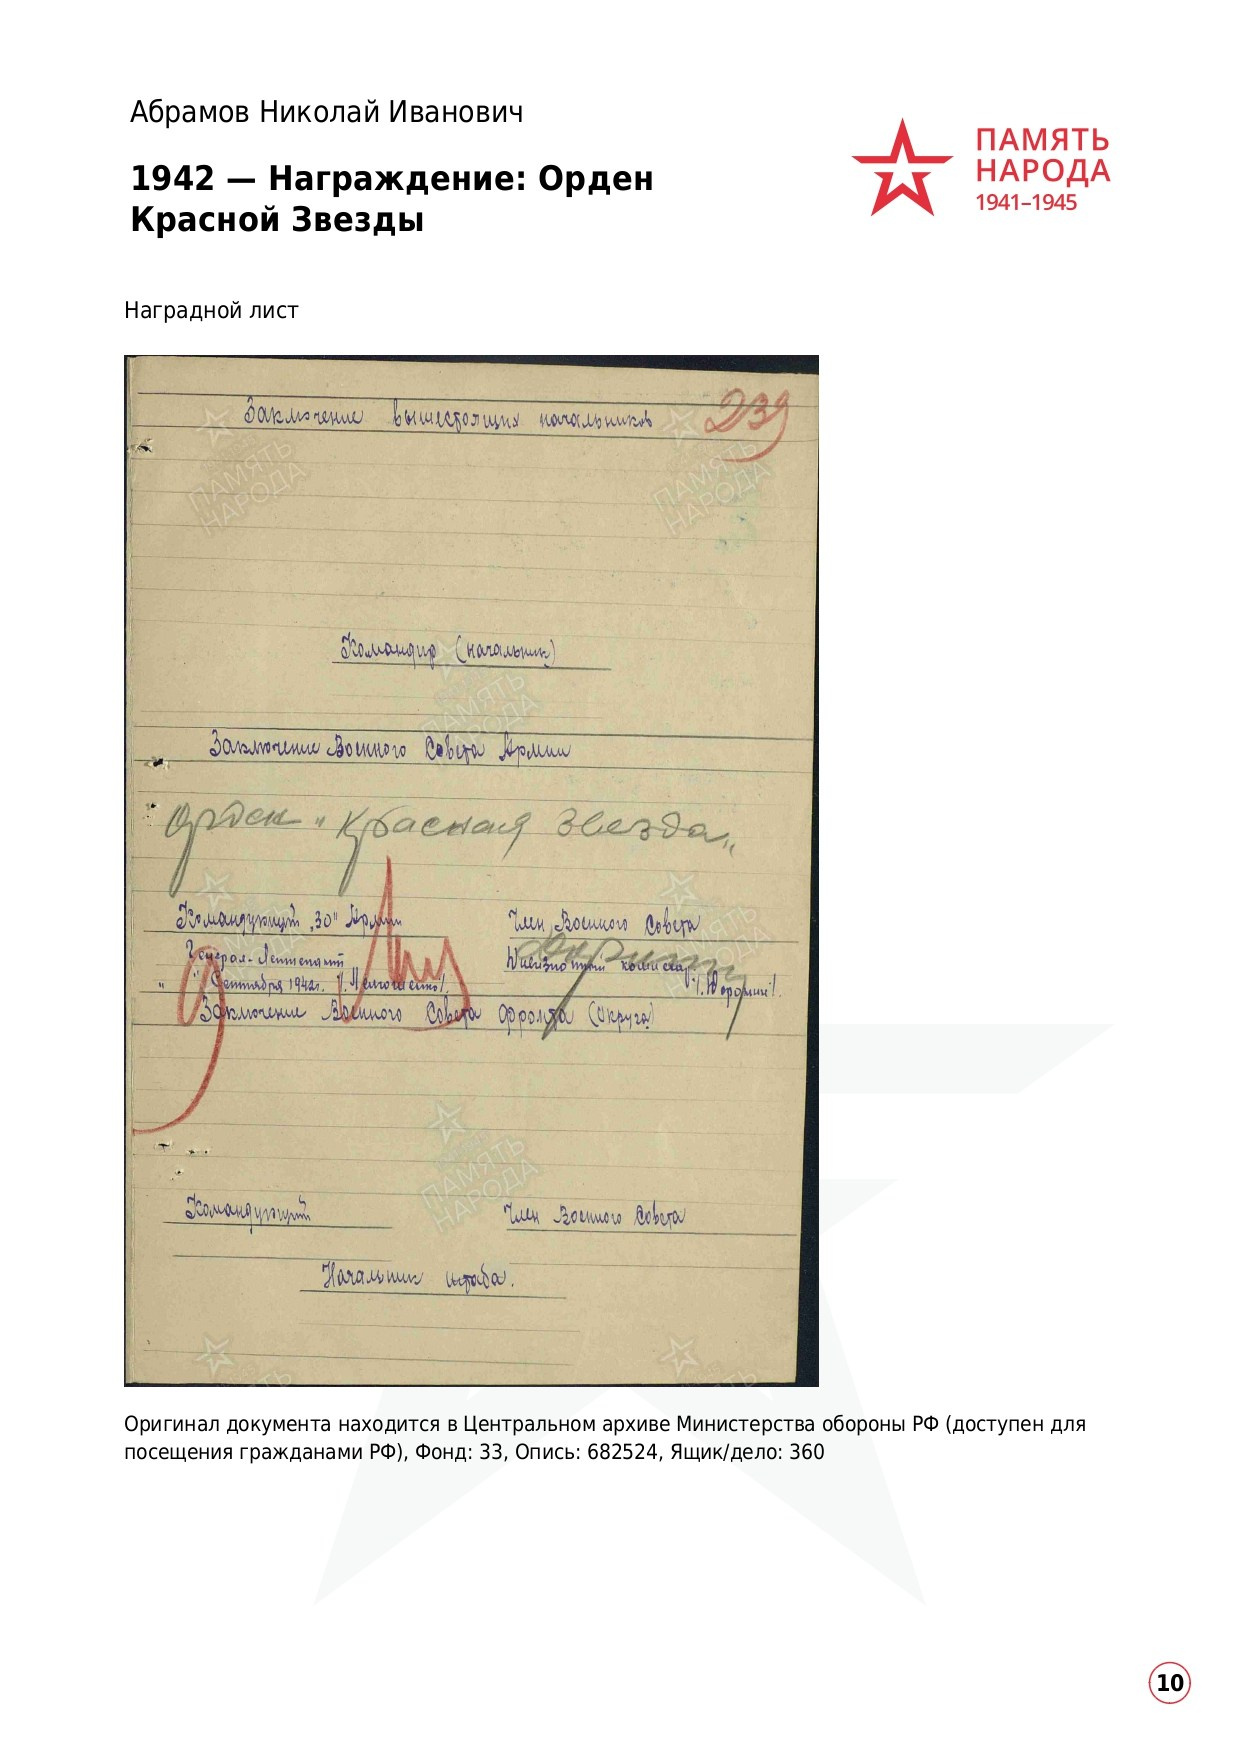 Абрамов Николай Иванович
1942 — Награждение: Орден
Красной Звезды
ПАМЯТЬ
НАРОДА
1941–1945
Наградной лист
239
Заключение вышестоящих начальников
Командир (начальник)
Заключение Военного Совета Армии
Орден "Красная Звезда"
Командующий "30" Армии
Член Военного Совета
Генерал-Лейтенант
Дивизионный комиссар
" " Сентября 1942г.
Заключение Военного Совета Фронта (Округа)
Командующий
Член Военного Совета
Начальник штаба.
Оригинал документа находится в Центральном архиве Министерства обороны РФ (доступен для
посещения гражданами РФ), Фонд: 33, Опись: 682524, Ящик/дело: 360
10